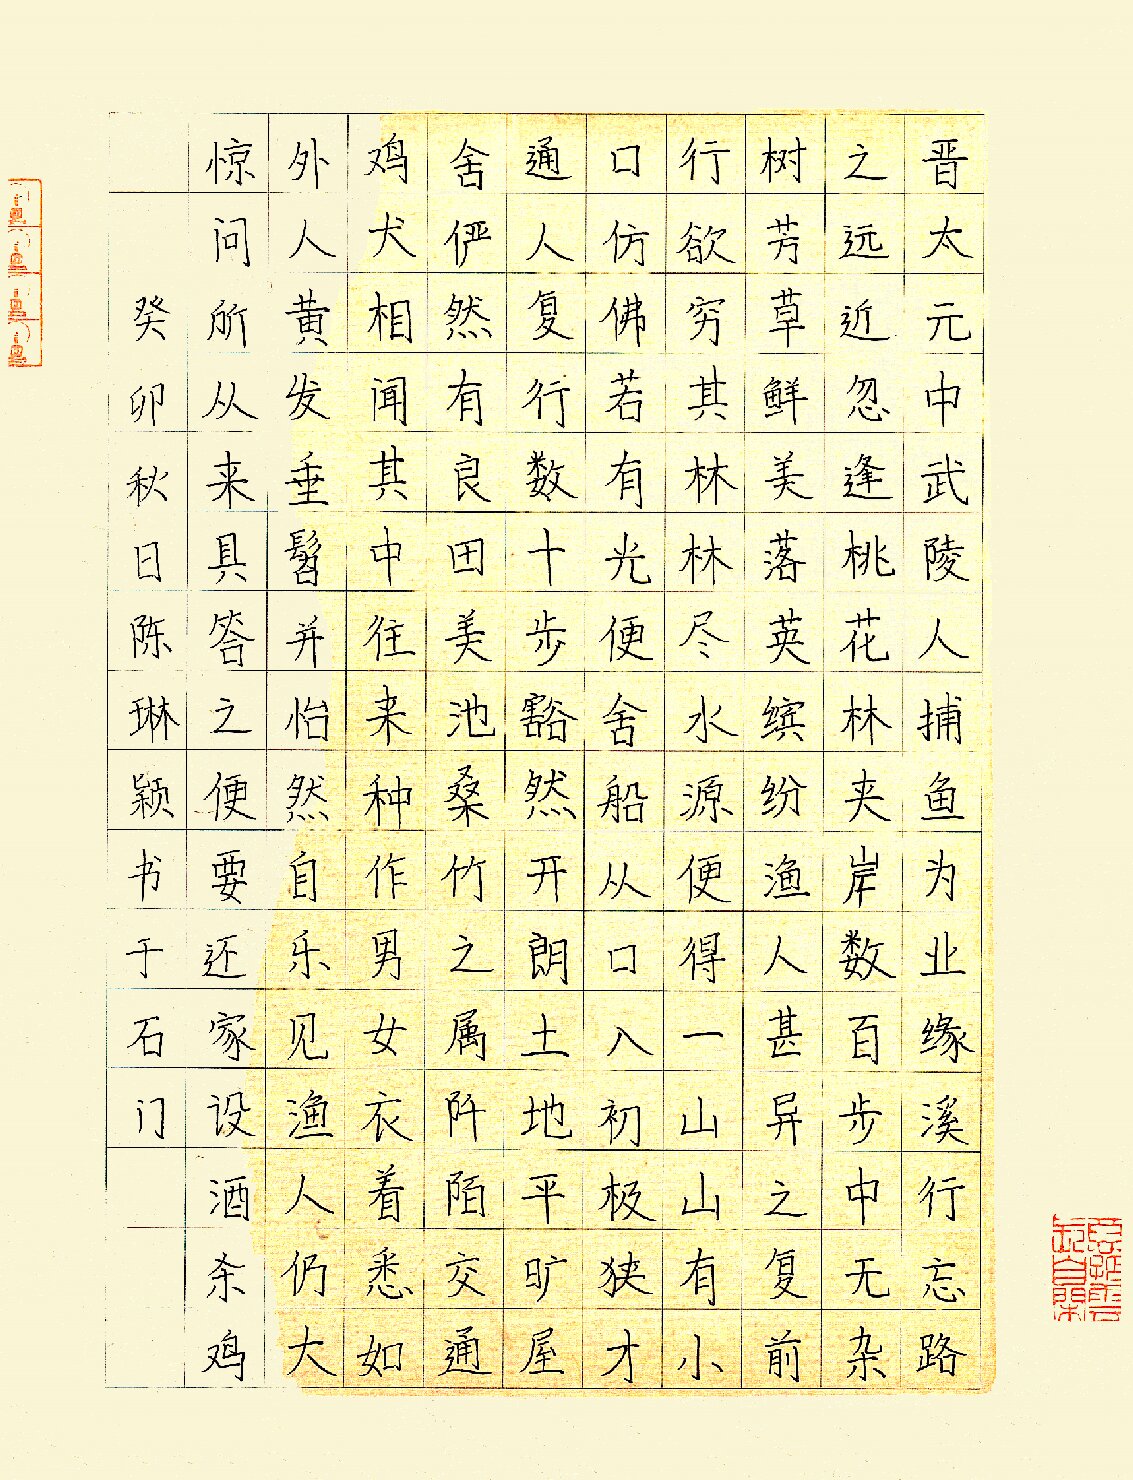 晋太元中武陵人捕鱼为业缘溪行忘路
之远近忽逢桃花林夹岸数百步中无杂
树芳草鲜美落英缤纷渔人甚异之复前
行欲穷其林林尽水源便得一山山有小
口仿佛若有光便舍船从口入初极狭才
通人复行数十步豁然开朗土地平旷屋
舍俨然有良田美池桑竹之属阡陌交通
鸡犬相闻其中往来种作男女衣着悉如
外人黄发垂髫并怡然自乐见渔人仍大
惊问所从来具答之便要还家设酒杀鸡
癸卯秋日陈琳颖书于石门